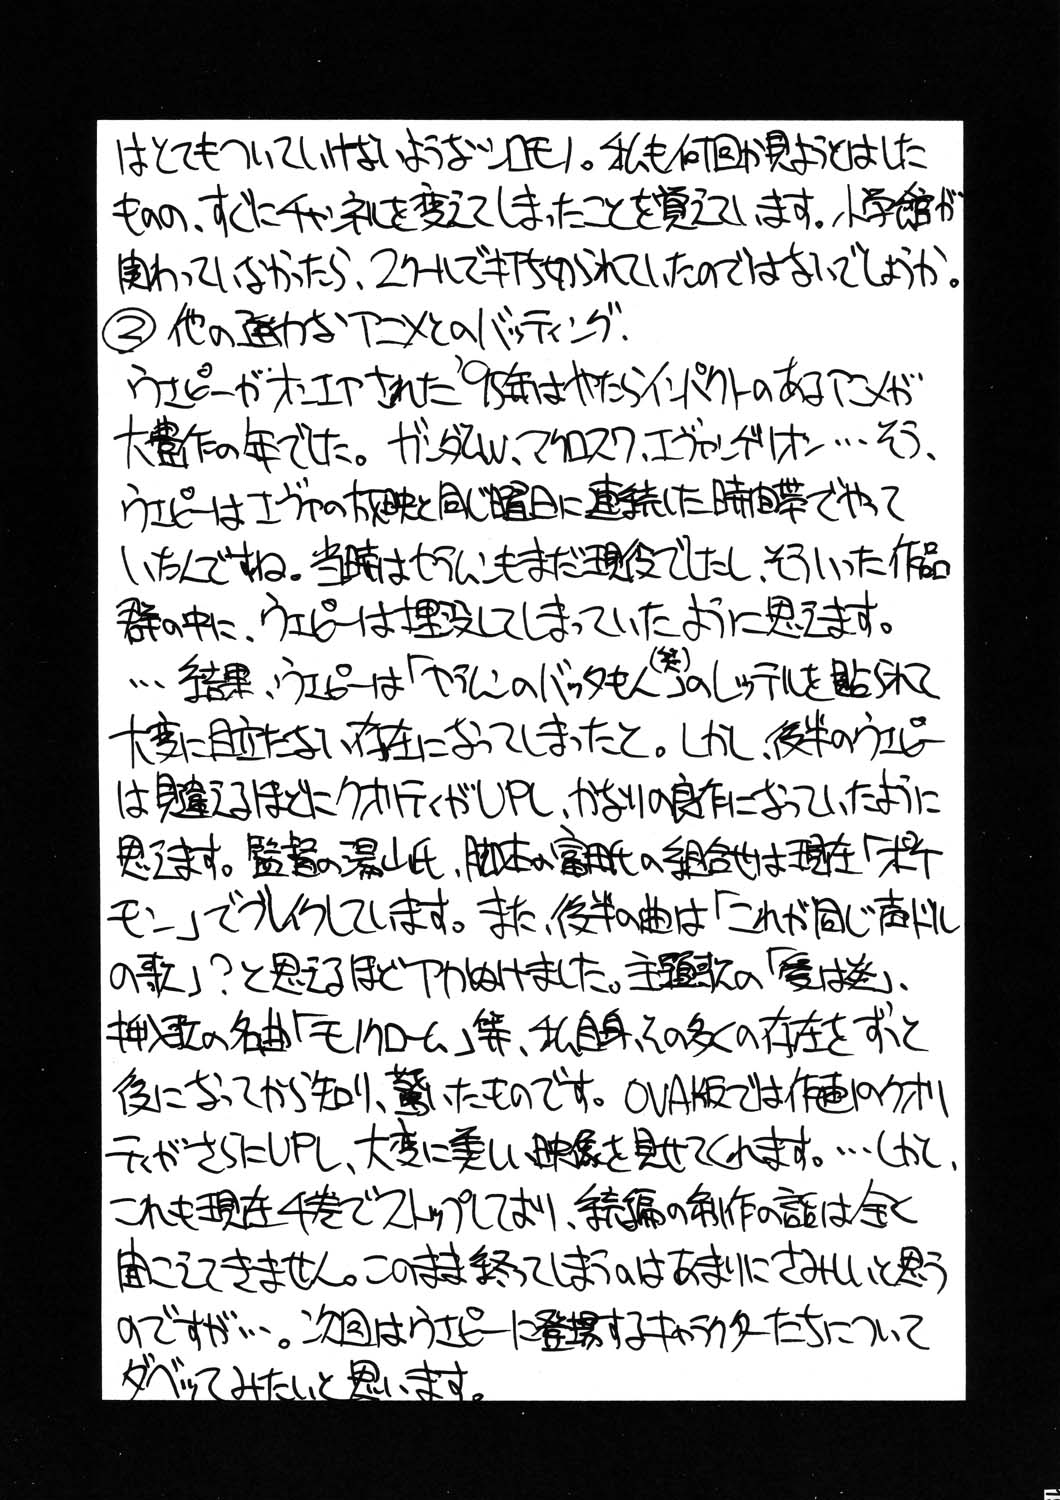 はとてもついていけないようなシロモノ。私も何回か見ようとはした
ものの、すぐにチャンネルを変えてしまったことを覚えています。小学館が
関わっていなかったら、2クールで打ち切られていたのではないでしょうか。
② 他の強力なアニメとのバッティング.
ウエピーがオンエアされた'95年はやたらインパクトのあるアニメが
大豊作の年でした。ガンダムW、マクロス7、エヴァンゲリオン…そう、
ウエピーはエヴァの放映と同じ曜日に連続した時間帯でやって
いたんですね。当時はセラムンもまだ現役でしたし、そういった作品
群の中に、ウエピーは埋没してしまっていたように思えます。
…結果、ウエピーは「セラムンのバッタもん(笑)」のレッテルを貼られて
大変に目立たない存在になってしまったと。しかし、後半のウエピー
は見違えるほどにクオリティがUPし、かなりの良作になっていたように
思えます。監督の湯山氏、脚本の富田氏の組合せは現在「ポケ
モン」でブレイクしています。また、後半の曲は「これが同じ声ドル
の歌」?と思えるほどアカぬけました。主題歌の「愛は迷」、
挿入歌の名曲「モノクローム」等、私自身、その多くの存在をずっと
後になってから知り、驚いたものです。OVA版では作画のクオリ
ティがさらにUPし、大変に美しい映像を見せてくれます。…しかし、
これも現在4巻でストップしており、続編の制作の話は全く
聞こえてきません。このまま終ってしまうのはあまりにさみしいと思う
のですが…。次回はウエピーに登場するキャラクターたちについて
ダベッてみたいと思います。